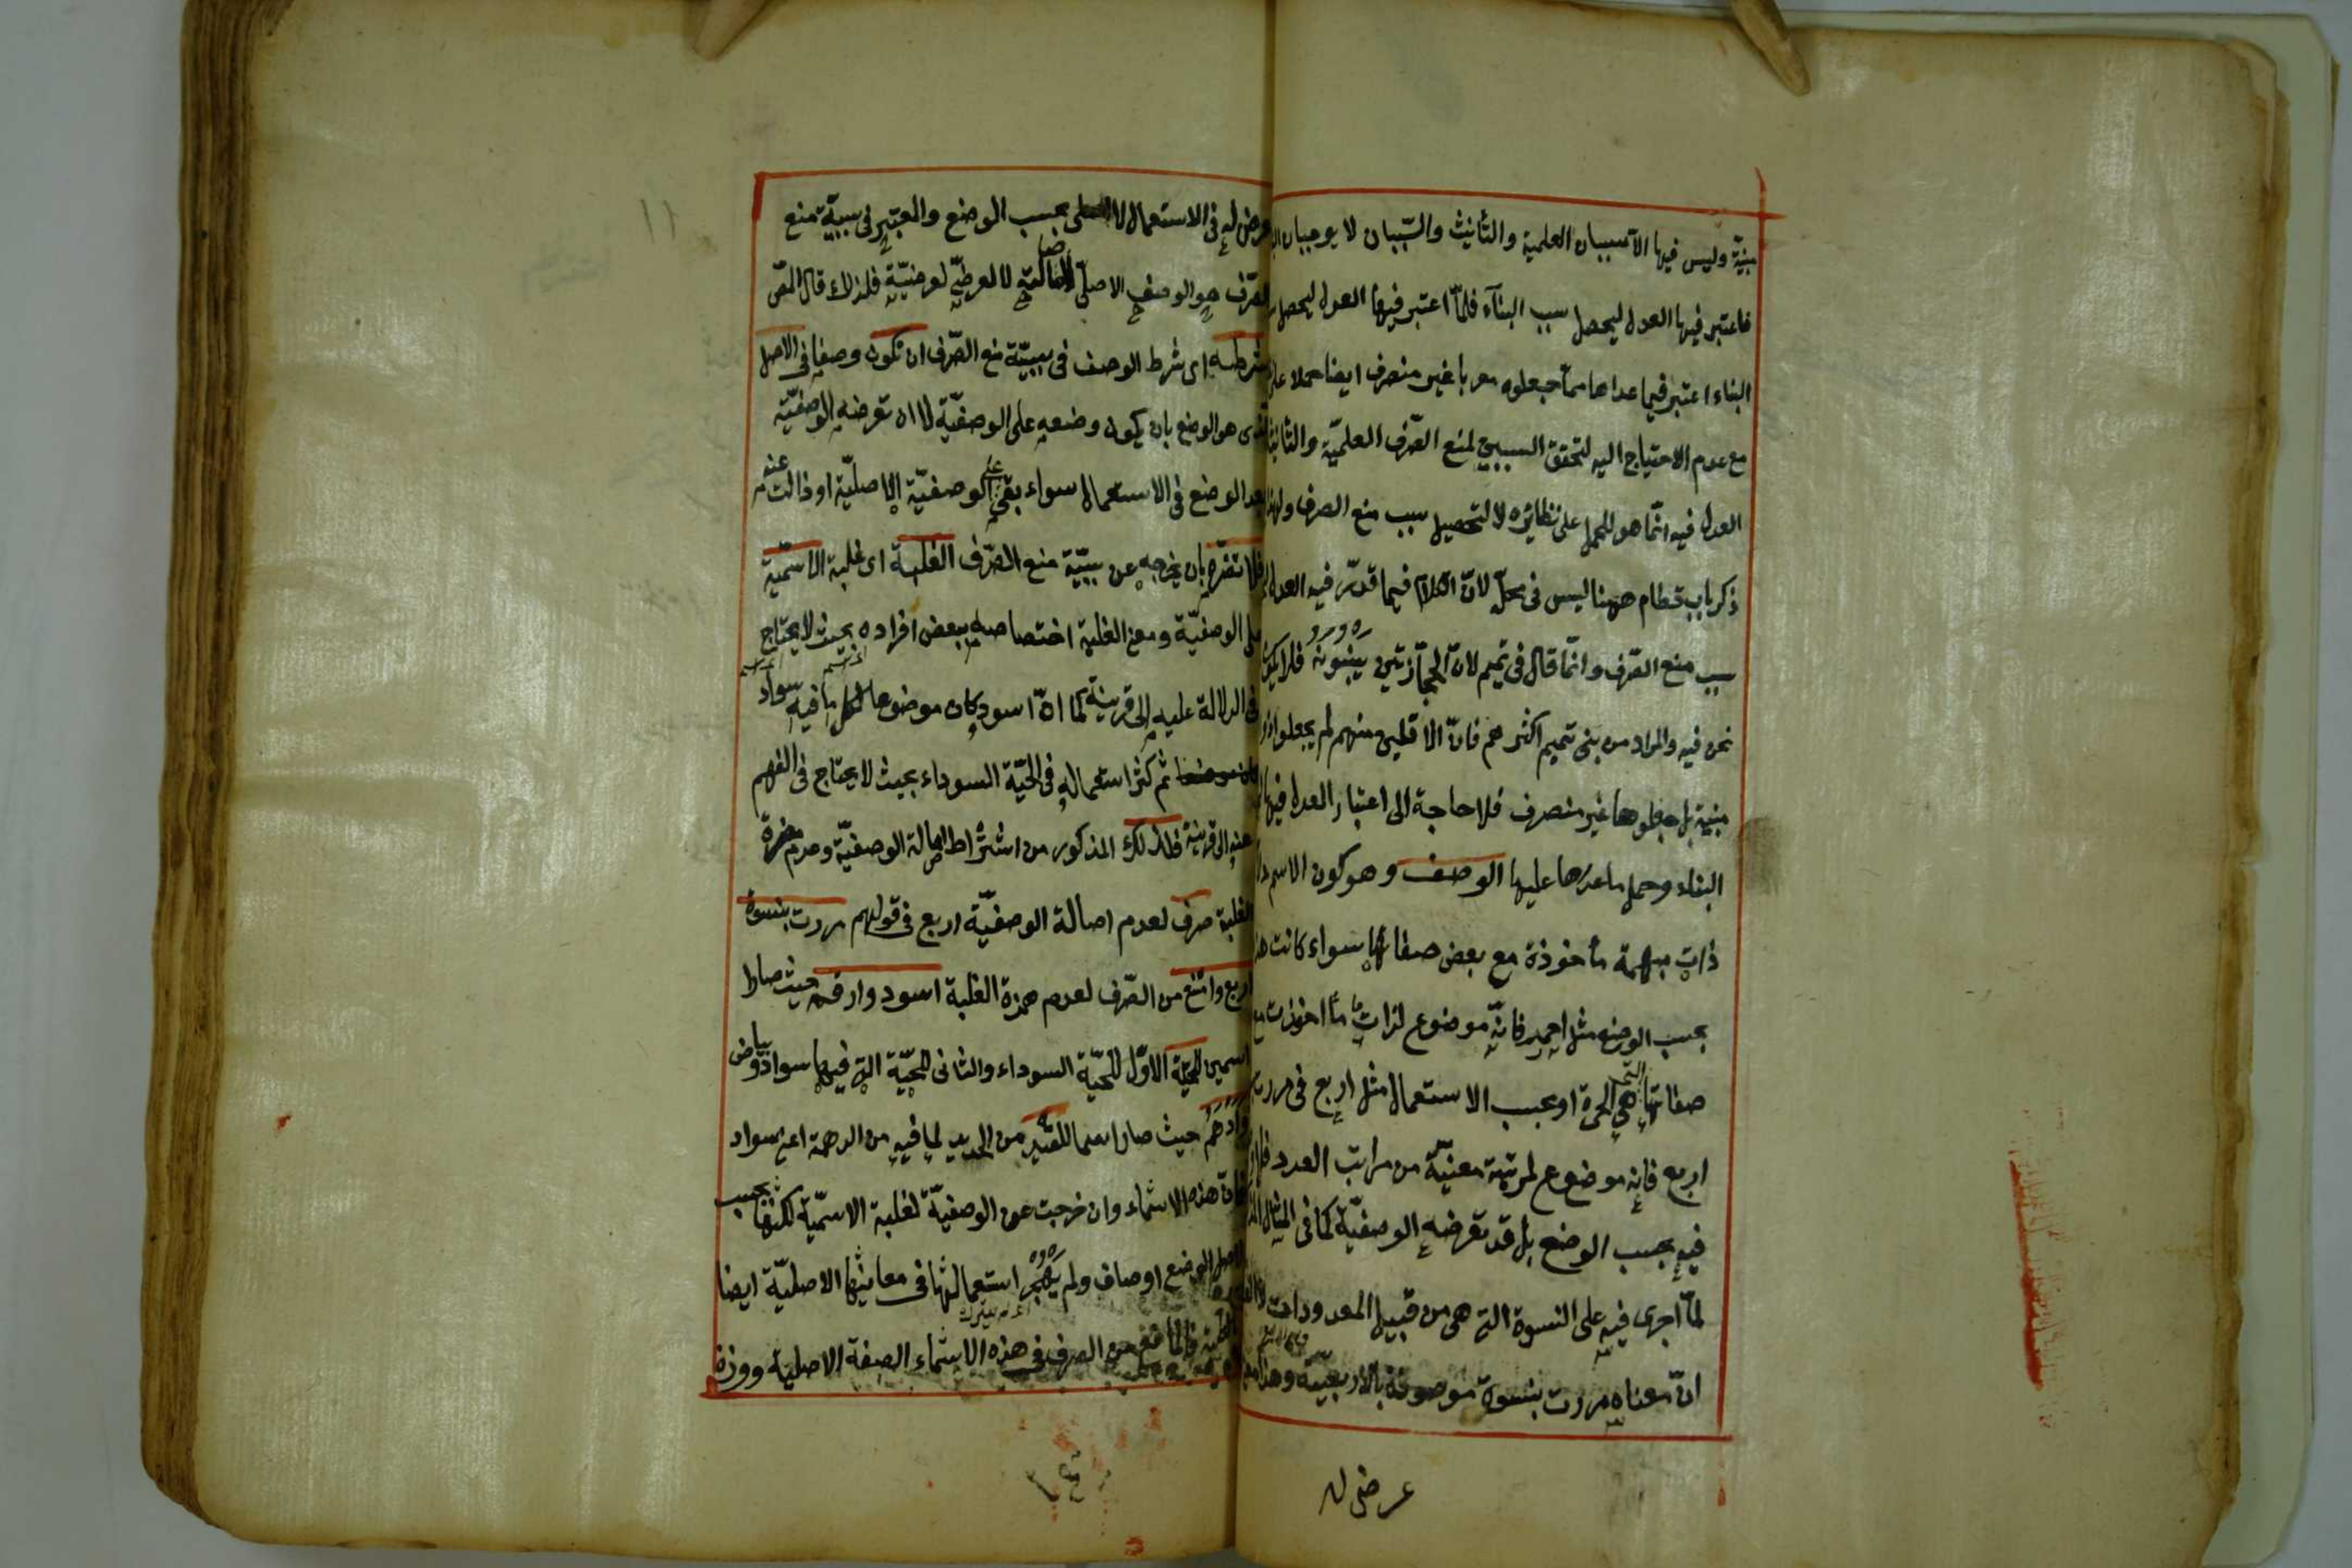 مبنيّة وليس فيها الاّ سببان العلمية والتأنيث والسّببان لا يوجبان
فاعتبر فيها العدل ليحصل سبب البنآء فلمّا اعتبر فيها العدل ليحصل
البناء اعتبر فيما عداها ممّا جعلوه معربا غير منصرف ايضا حملا على
مع عدم الاحتياج اليه لتحقق السببين لمنع الصّرف العلميّة والتأنيث
العدل فيه انّما هو للحمل على نظائره لا لتحصيل سبب منع الصرف ولهذا
ذكر باب قطام ههنا ليس فى محلّه لانّ الكلام فيما قدّر فيه العدل
سبب منع الصّرف وانّما قال فى تميم لانّ الحجازيّين يبنونه فلا يكون
نحن فيه والمراد من بنى تميم اكثرهم فانّ الاقلين منهم لم يجعلوا
مبنية بل جعلوها غير منصرف فلا حاجة الى اعتبار العدل فيها
البناء وحمل ما عداها عليها الوصف وهو كون الاسم
ذات مبهمة مأخوذة مع بعض صفاتها سواء كانت
بحسب الوضع مثل احمر فانّه موضوع لذات ما اخذت مع
صفاتها التى هى الحمرة او بحسب الاستعمال مثل اربع فى مررت
اربع فانه موضوع لمرتبة معينة من مراتب العدد فلا
فيه بحسب الوضع بل قد تعرضه الوصفيّة كما فى المثال
لمّا اجرى فيه على النسوة التى هى من قبيل المعدودات
انّ معناه مررت بنسوة موصوفة بالاربعيّة وهذا
عرض له
عرض له فى الاستعمال لا بحسب الوضع والمعتبر فى سببيّة منع
الصّرف هو الوصف الاصلىّ لاصالته لا العرضىّ لعرضيّته فلذلك قال المص
شرطه اى شرط الوصف فى سببيّة منع الصّرف ان يكون وصفا فى الاصل
الذى هو الوضع بان يكون وضعه على الوصفيّة لا ان تعرضه الوصفيّة
بعد الوضع فى الاستعمال سواء بقى على الوصفيّة الاصليّة او زالت عنه
فلا تضرّه بان يخرجه عن سببيّة منع الصّرف الغلبة اى غلبة الاسميّة
على الوصفيّة ومعنى الغلبة اختصاصه ببعض افراده بحيث لا يحتاج
فى الدلالة عليه الى قرينة كما انّ اسود كان موضوعا لكل ما فيه سواد
ثم كثر استعماله فى الحيّة السوداء بحيث لا يحتاج فى الفهم
عنه الى قرينة فلذلك المذكور من اشتراط اصالة الوصفيّة وعدم مضرة
الغلبة صرف لعدم اصالة الوصفيّة اربع فى قولهم مررت بنسوة
اربع وامتنع من الصّرف لعدم مضرة الغلبة اسود وارقم حيث صارا
اسمين للحيّة الاوّل للحيّة السوداء والثانى للحيّة التى فيها سواد وبياض
وادهم حيث صار اسما للقيد من الحديد لما فيه من الدهمة اعنى سواد
فان هذه الاسماء وان خرجت عن الوصفيّة لغلبة الاسميّة لكنها بحسب
اصل الوضع اوصاف ولم يهجر استعمالها فى معانيها الاصليّة ايضا
بالكلية فالمانع من الصرف فى هذه الاسماء الصفة الاصلية ووزن
١١